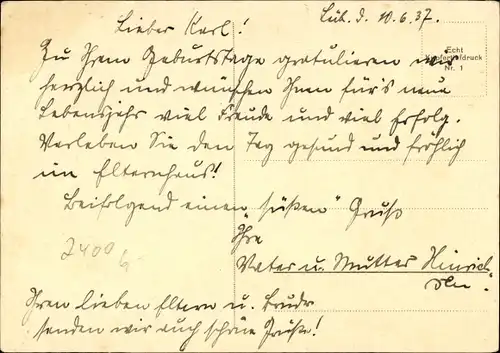 Lüb. d. 10.6.37.
Lieber Karl!
Echt
Kupfertiefdruck
Nr. 1
Zu Ihrem Geburtstage gratulieren wir
herzlich und wünschen Ihnen für's neue
Lebensjahr viel Freude und viel Erfolg.
Verleben Sie den Tag gesund und fröhlich
im Elternhaus!
Beifolgend einen "süßen" Gruß
Ihre
Vater u. Mutter Hinrich
Ihren lieben Eltern u. Bruder
senden wir auch schöne Grüße!
2400